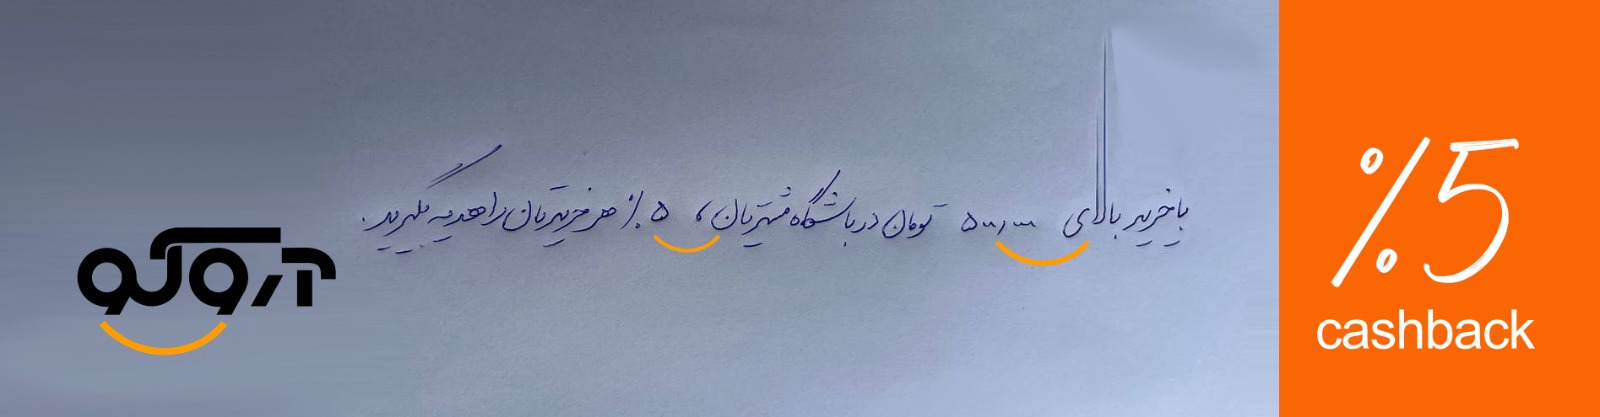 با خرید بالای ۵۰۰,۰۰۰ تومان در باشگاه مشتریان، ۵٪ از هر خریدتان را هدیه بگیرید.
%5
cashback